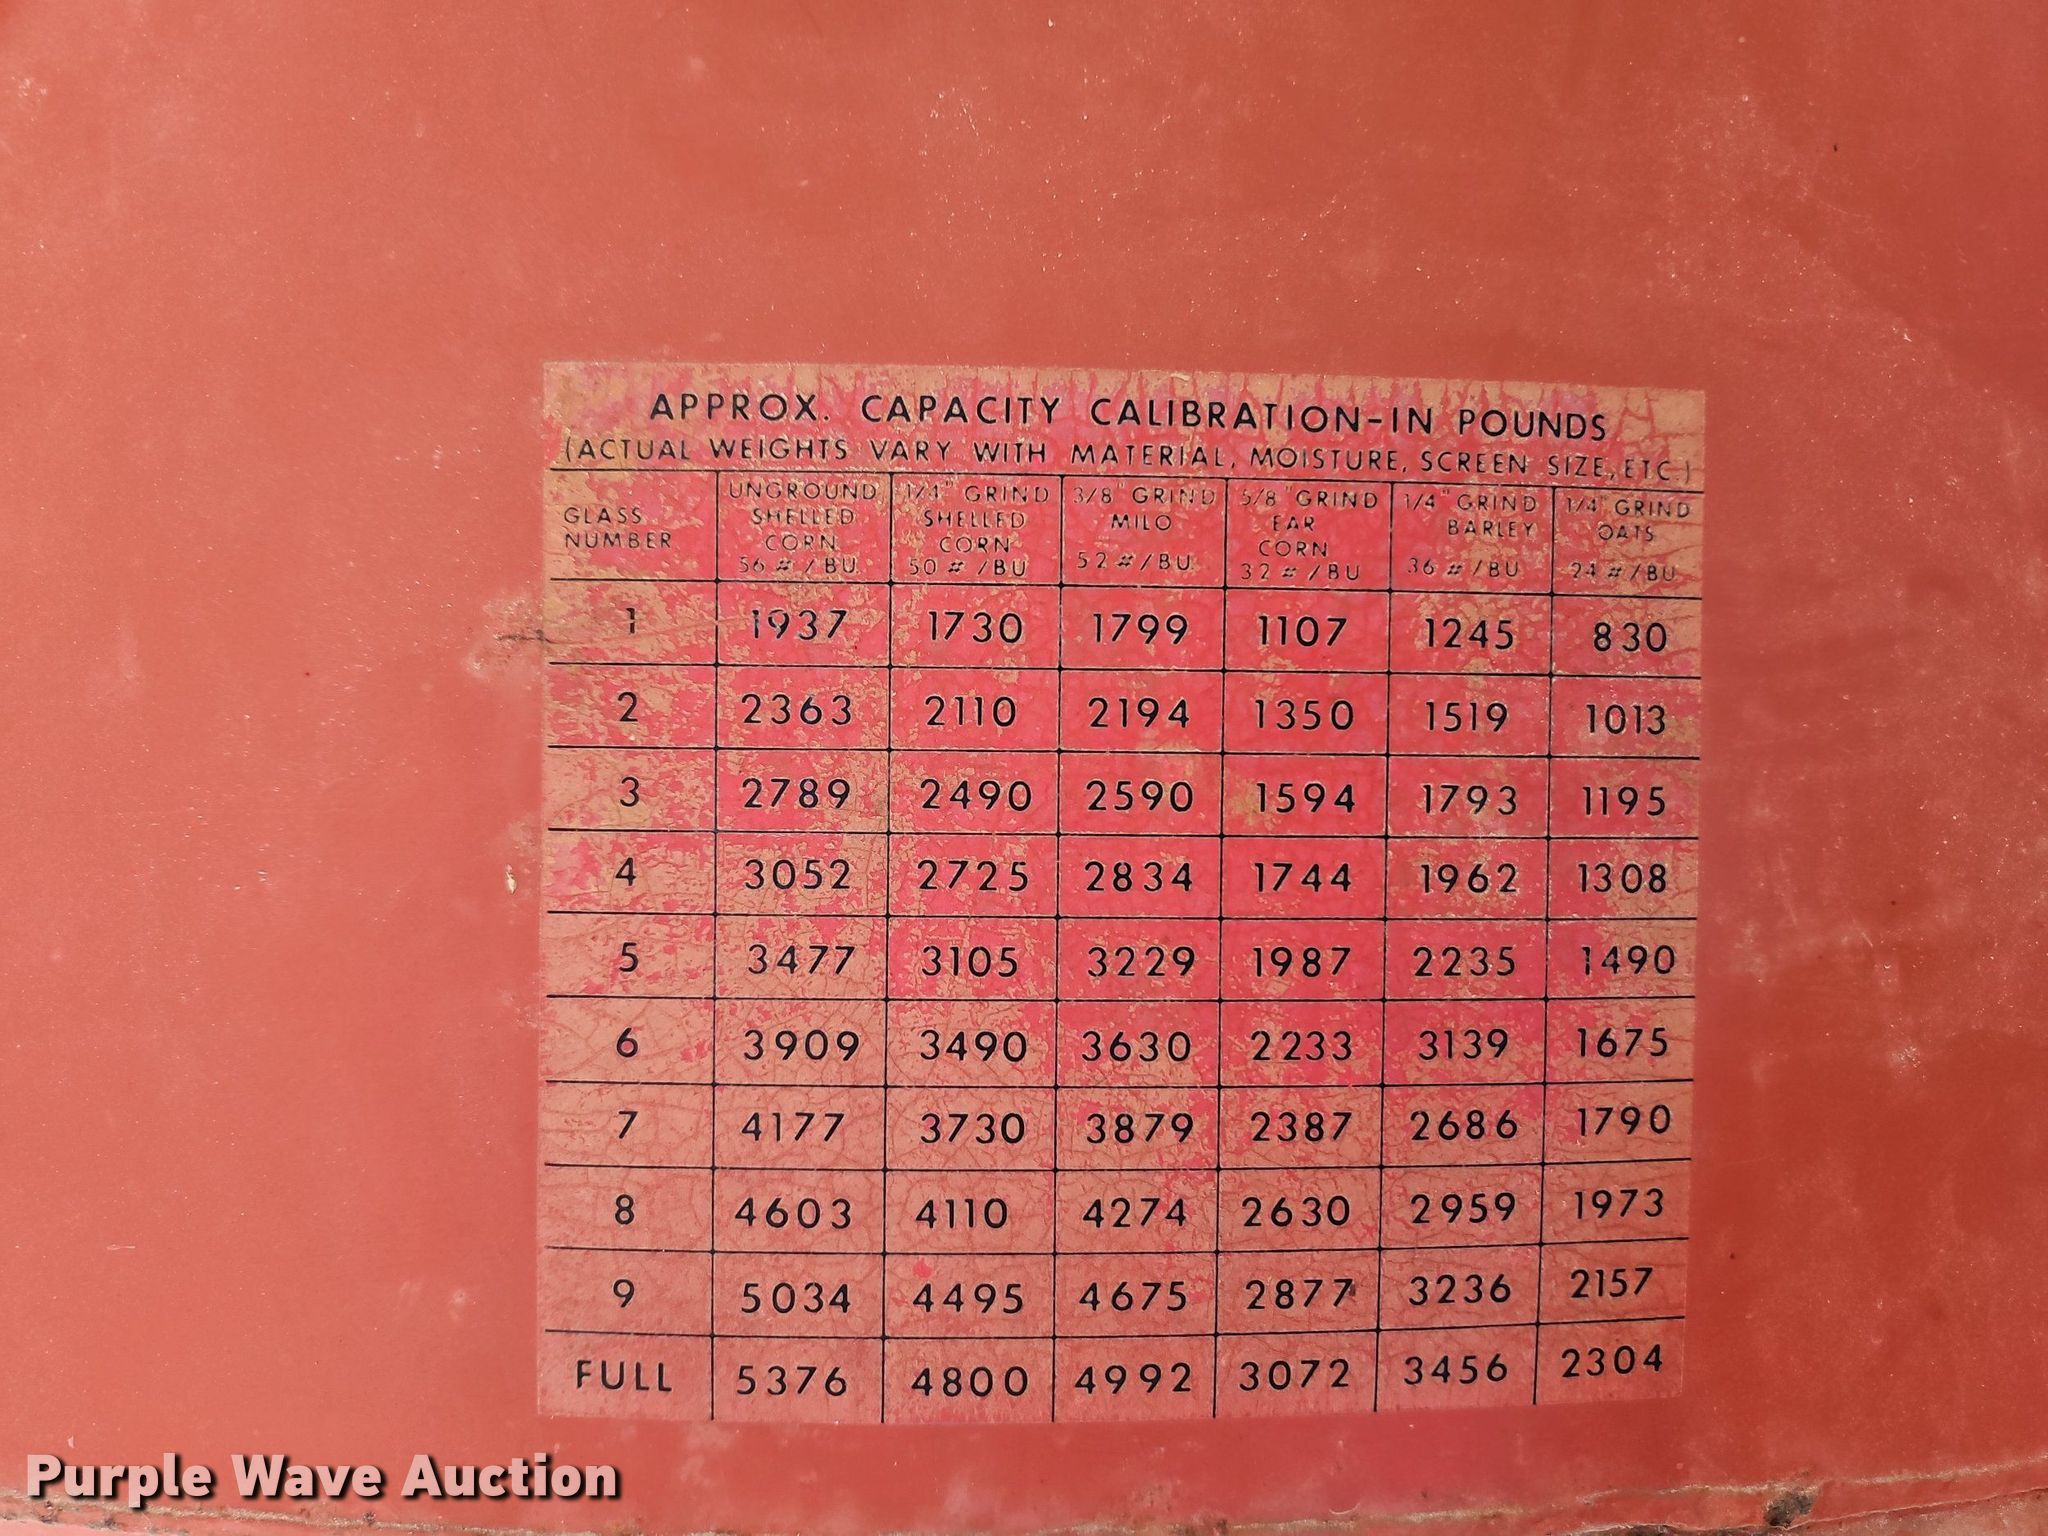 APPROX. CAPACITY CALIBRATION-IN POUNDS
(ACTUAL WEIGHTS VARY WITH MATERIAL, MOISTURE, SCREEN SIZE, ETC.)
GLASS NUMBER UNGROUND SHELLED CORN 56 #/BU 1/4" GRIND SHELLED CORN 50 #/BU 3/8" GRIND MILO 52 #/BU 5/8" GRIND EAR CORN 32 #/BU 1/4" GRIND BARLEY 36 #/BU 1/4" GRIND OATS 24 #/BU
1 1937 1730 1799 1107 1245 830
2 2363 2110 2194 1350 1519 1013
3 2789 2490 2590 1594 1793 1195
4 3052 2725 2834 1744 1962 1308
5 3477 3105 3229 1987 2235 1490
6 3909 3490 3630 2233 3139 1675
7 4177 3730 3879 2387 2686 1790
8 4603 4110 4274 2630 2959 1973
9 5034 4495 4675 2877 3236 2157
FULL 5376 4800 4992 3072 3456 2304
Purple Wave Auction